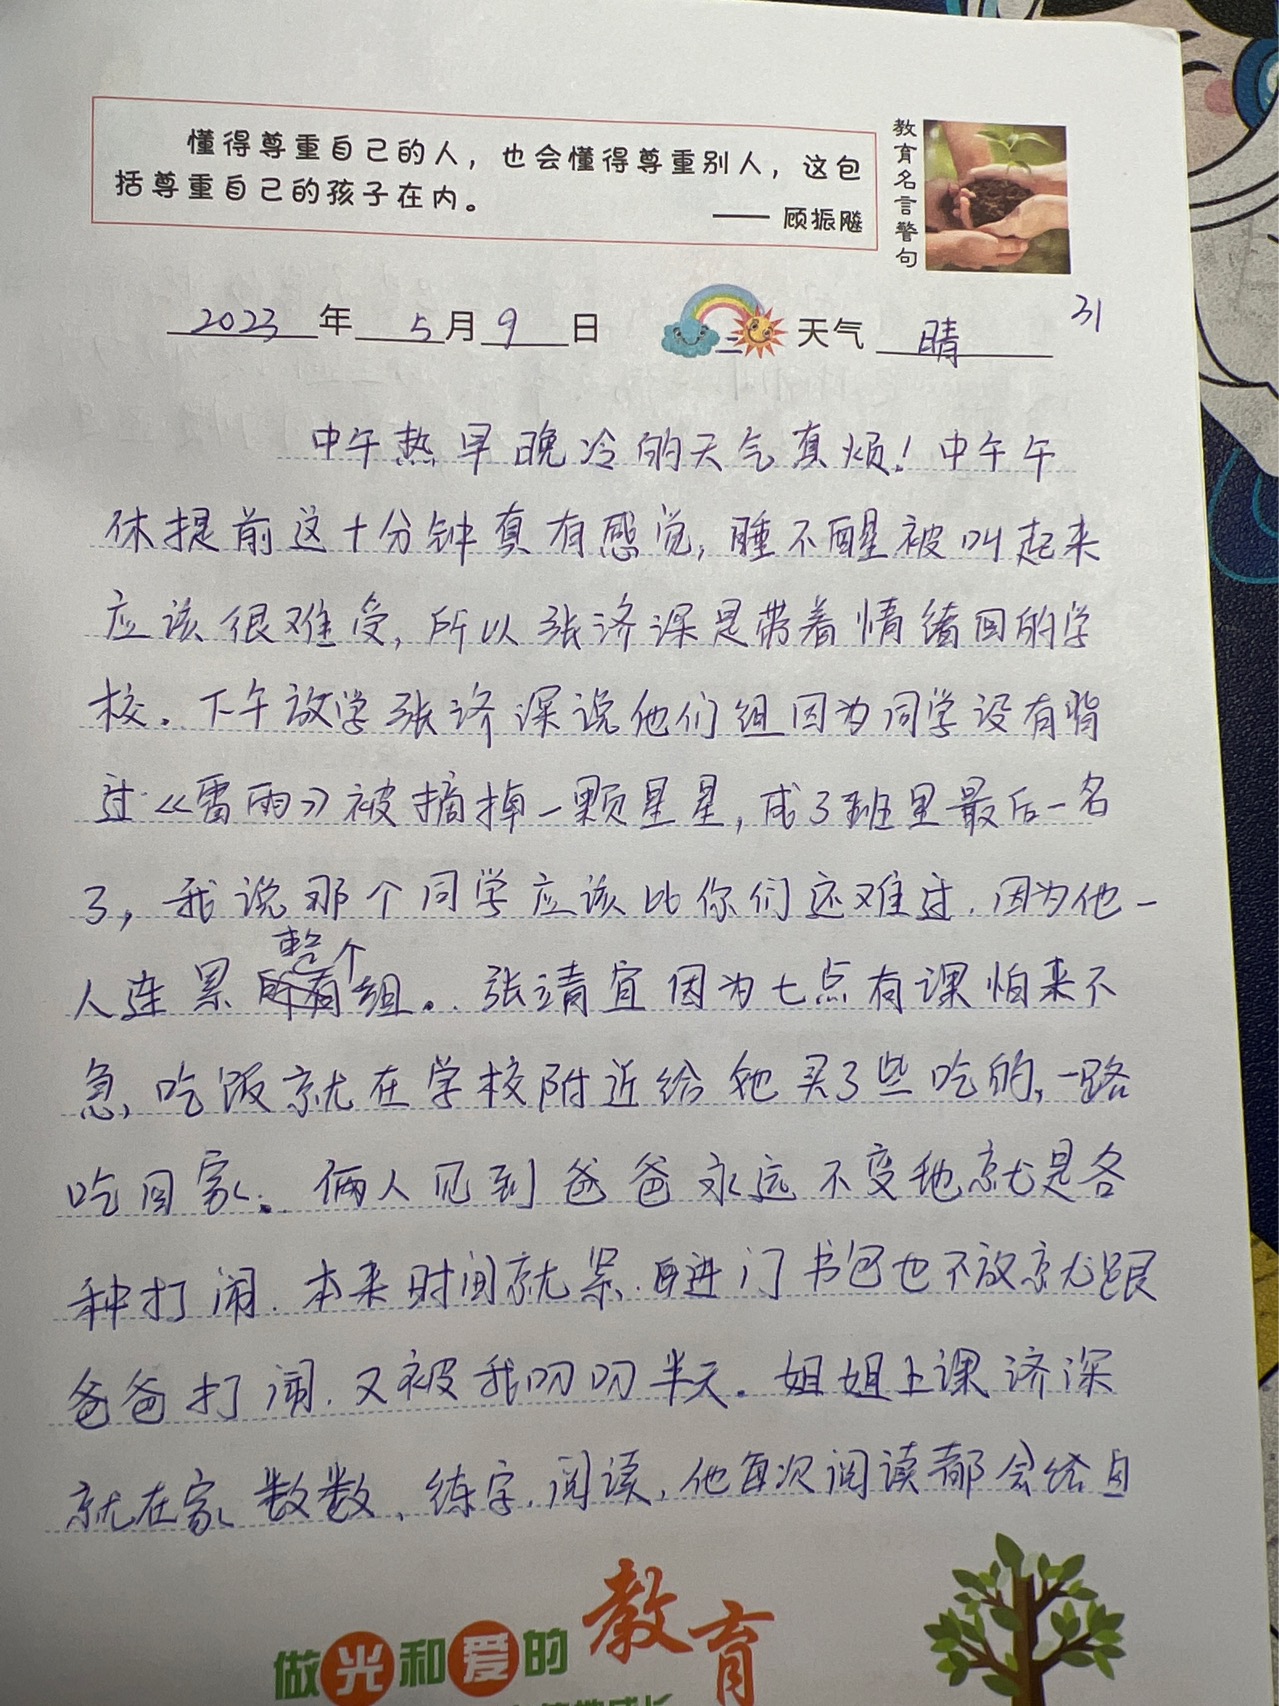 懂得尊重自己的人，也会懂得尊重别人，这包
括尊重自己的孩子在内。
—— 顾振飚
教育名言警句
2023年5月9日 天气 晴
31
中午热早晚冷的天气真烦！中午午
休提前这十分钟真有感觉，睡不醒被叫起来
应该很难受，所以张济深是带着情绪回的学
校。下午放学张济深说他们组因为同学没有背
过《雷雨》被摘掉一颗星星，成了班里最后一名
了，我说那个同学应该比你们还难过，因为他一
人连累整个组。张靖宜因为七点有课怕来不
急，吃饭就在学校附近给她买了些吃的，一路
吃回家。俩人见到爸爸永远不变地就是各
种打闹，本来时间就紧，再进门书包也不放就跟
爸爸打闹，又被我叨叨半天。姐姐上课济深
就在家数数、练字，阅读，他每次阅读都会给自
做光和爱的教育